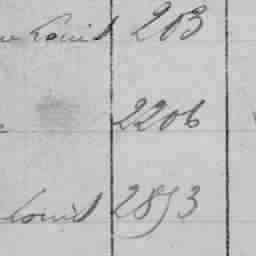 Louis 203
2206
Louis 2853